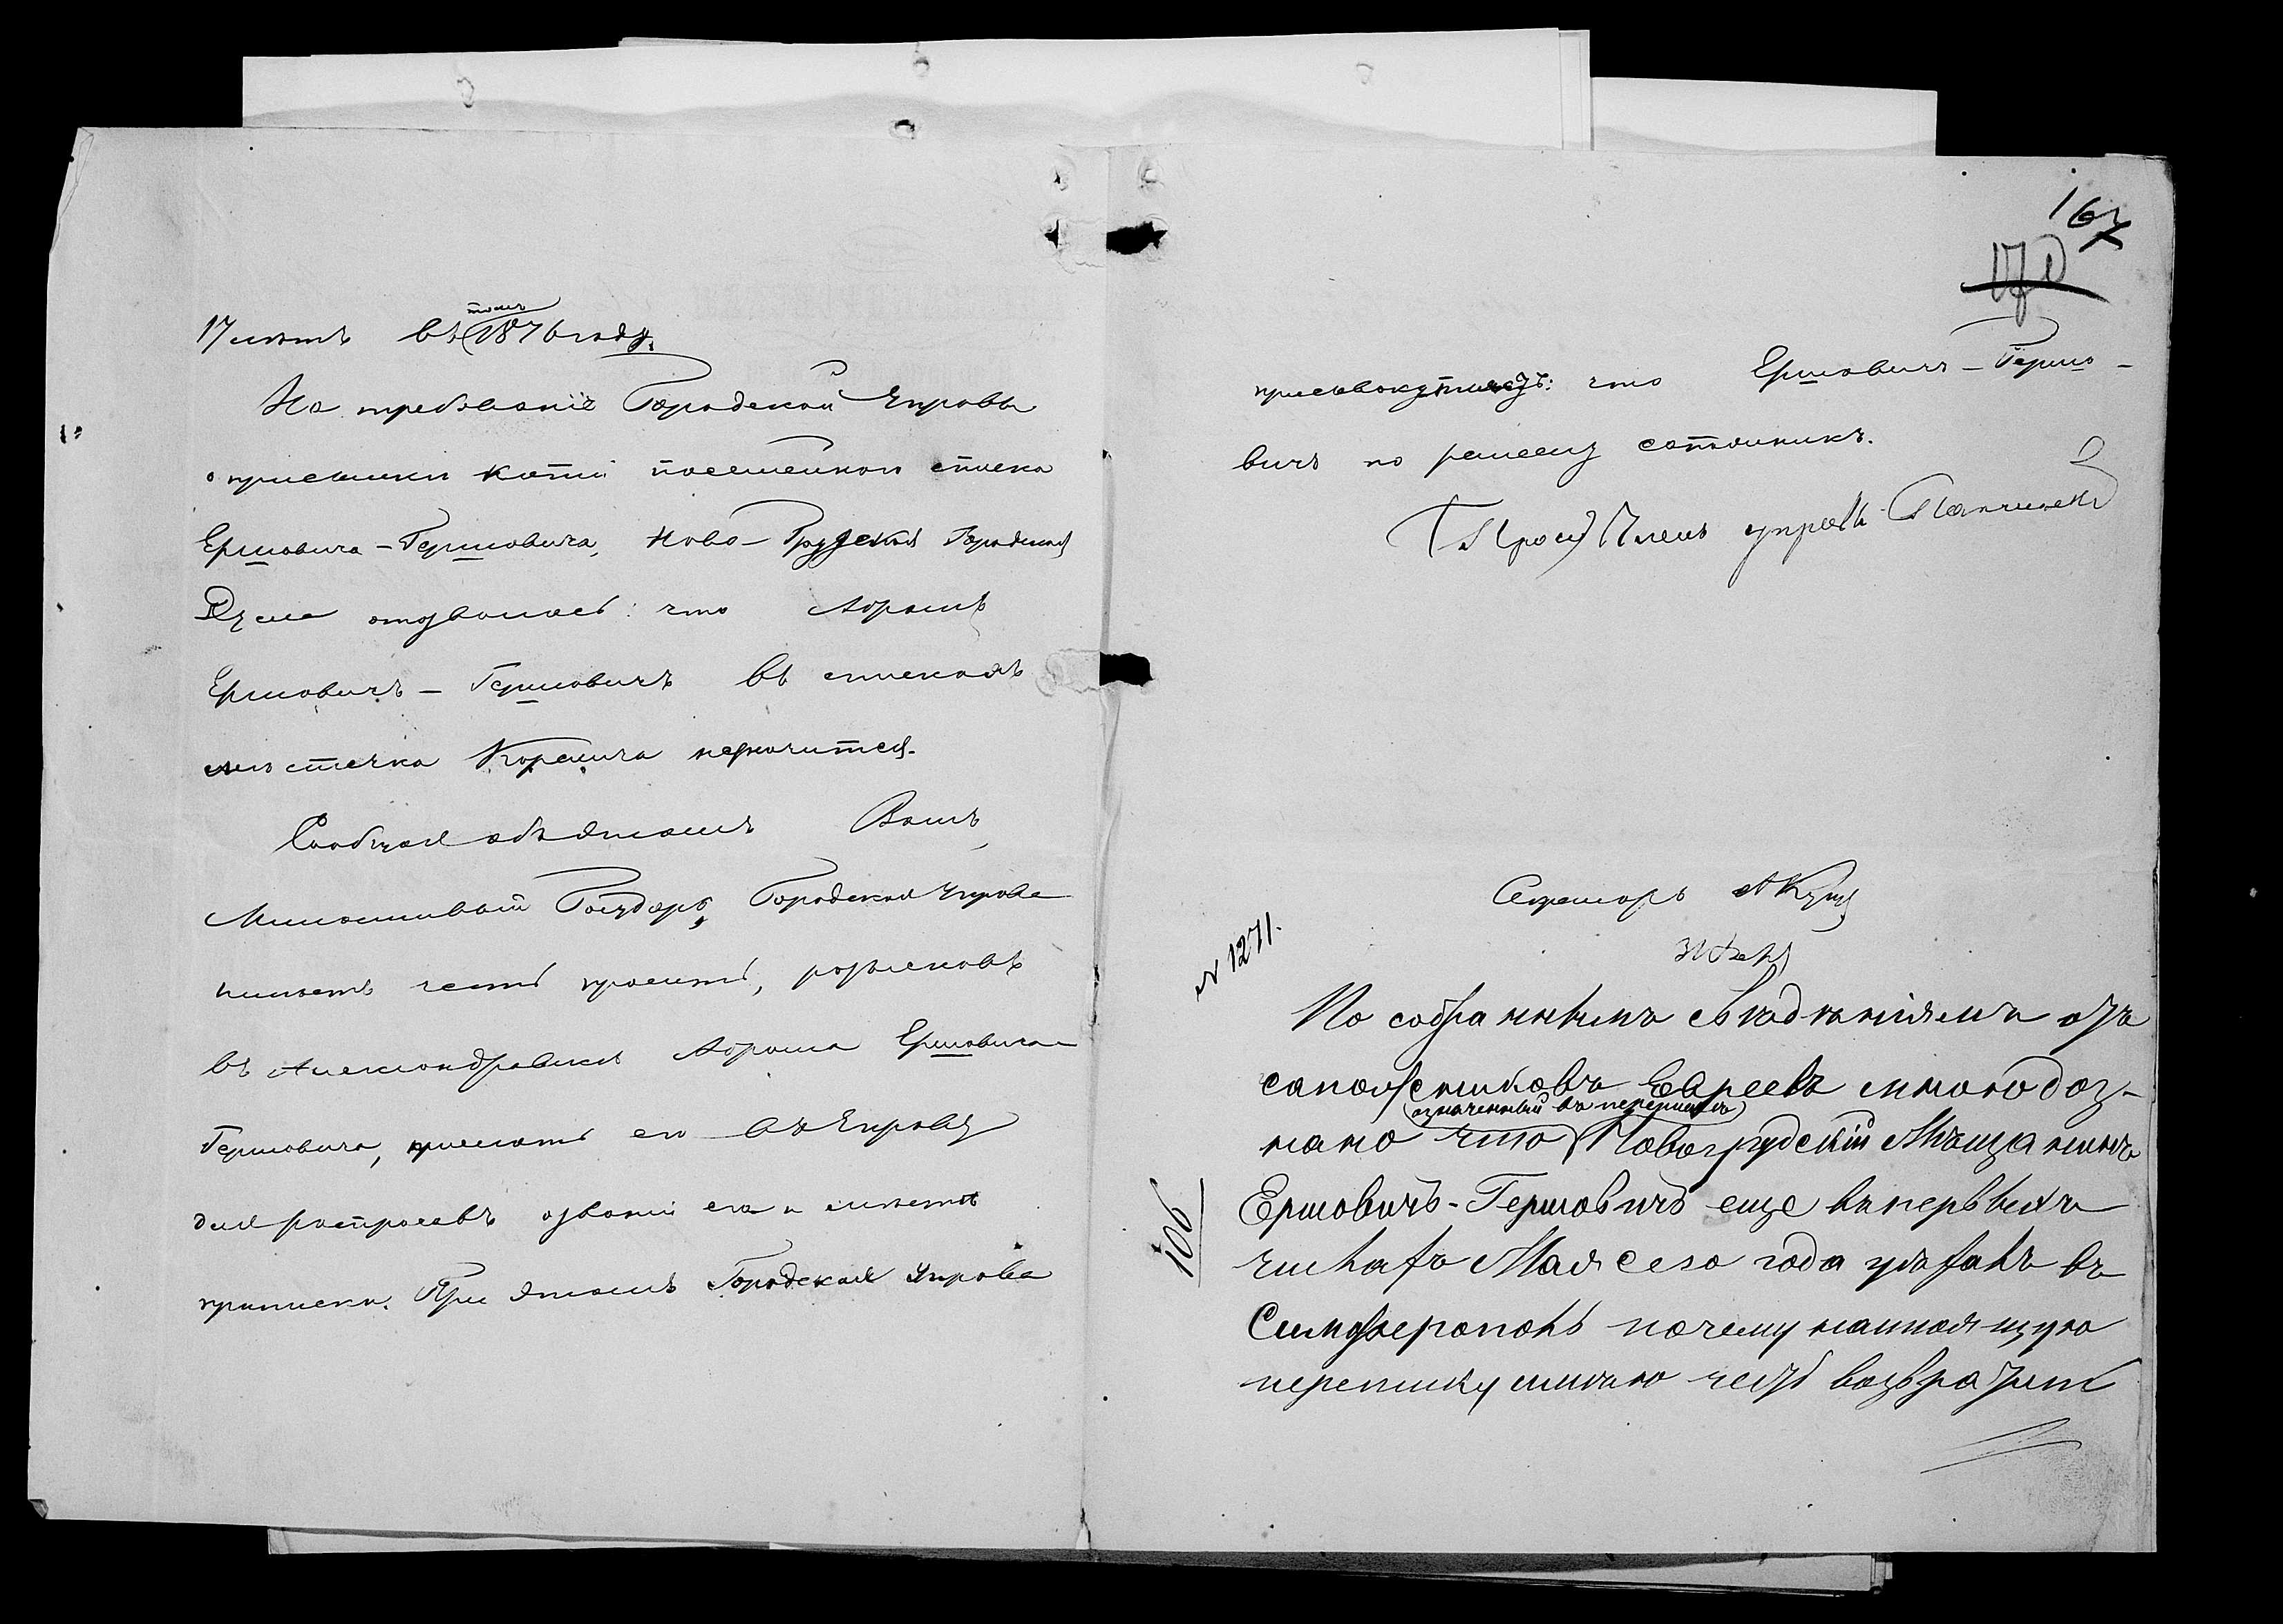 17 лѣтъ въ томъ 1876 году.
На требованіе Городской Управы
о присылки копіи посемейнаго списка
Ершовича-Гершовича, Ново-Грудская Городская
Дума отозвалась: что Абрамъ
Ершовичъ-Гершовичъ въ спискахъ
мѣстечка Кореличи незначится.
Сообщая объ этомъ Вамъ,
Милостивый Государь, Городская Управа
имѣетъ честь просить, розыскавъ
въ Александровскѣ Абрама Ершовича-
Гершовича, прислать его въ Управу
для роспросовъ озваніи его и мѣстѣ
приписки. При этомъ Городская Управа
167
170
присовокупляетъ: что Ершовичъ-Гершо-
вичъ по ремеслу сапожникъ.
Членъ управы
Секретарь
№ 1271.
106
По собраннымъ свѣдѣніямъ отъ
сапожниковъ Евреевъ мною доз-
нано что (означенный въ перепискѣ) Новогрудскій Мѣщанинъ
Ершовичъ-Гершовичъ еще въ первыхъ
числахъ Мая сего года уѣхалъ въ
Симферополь почему настоящую
переписку имѣю честь возвратить